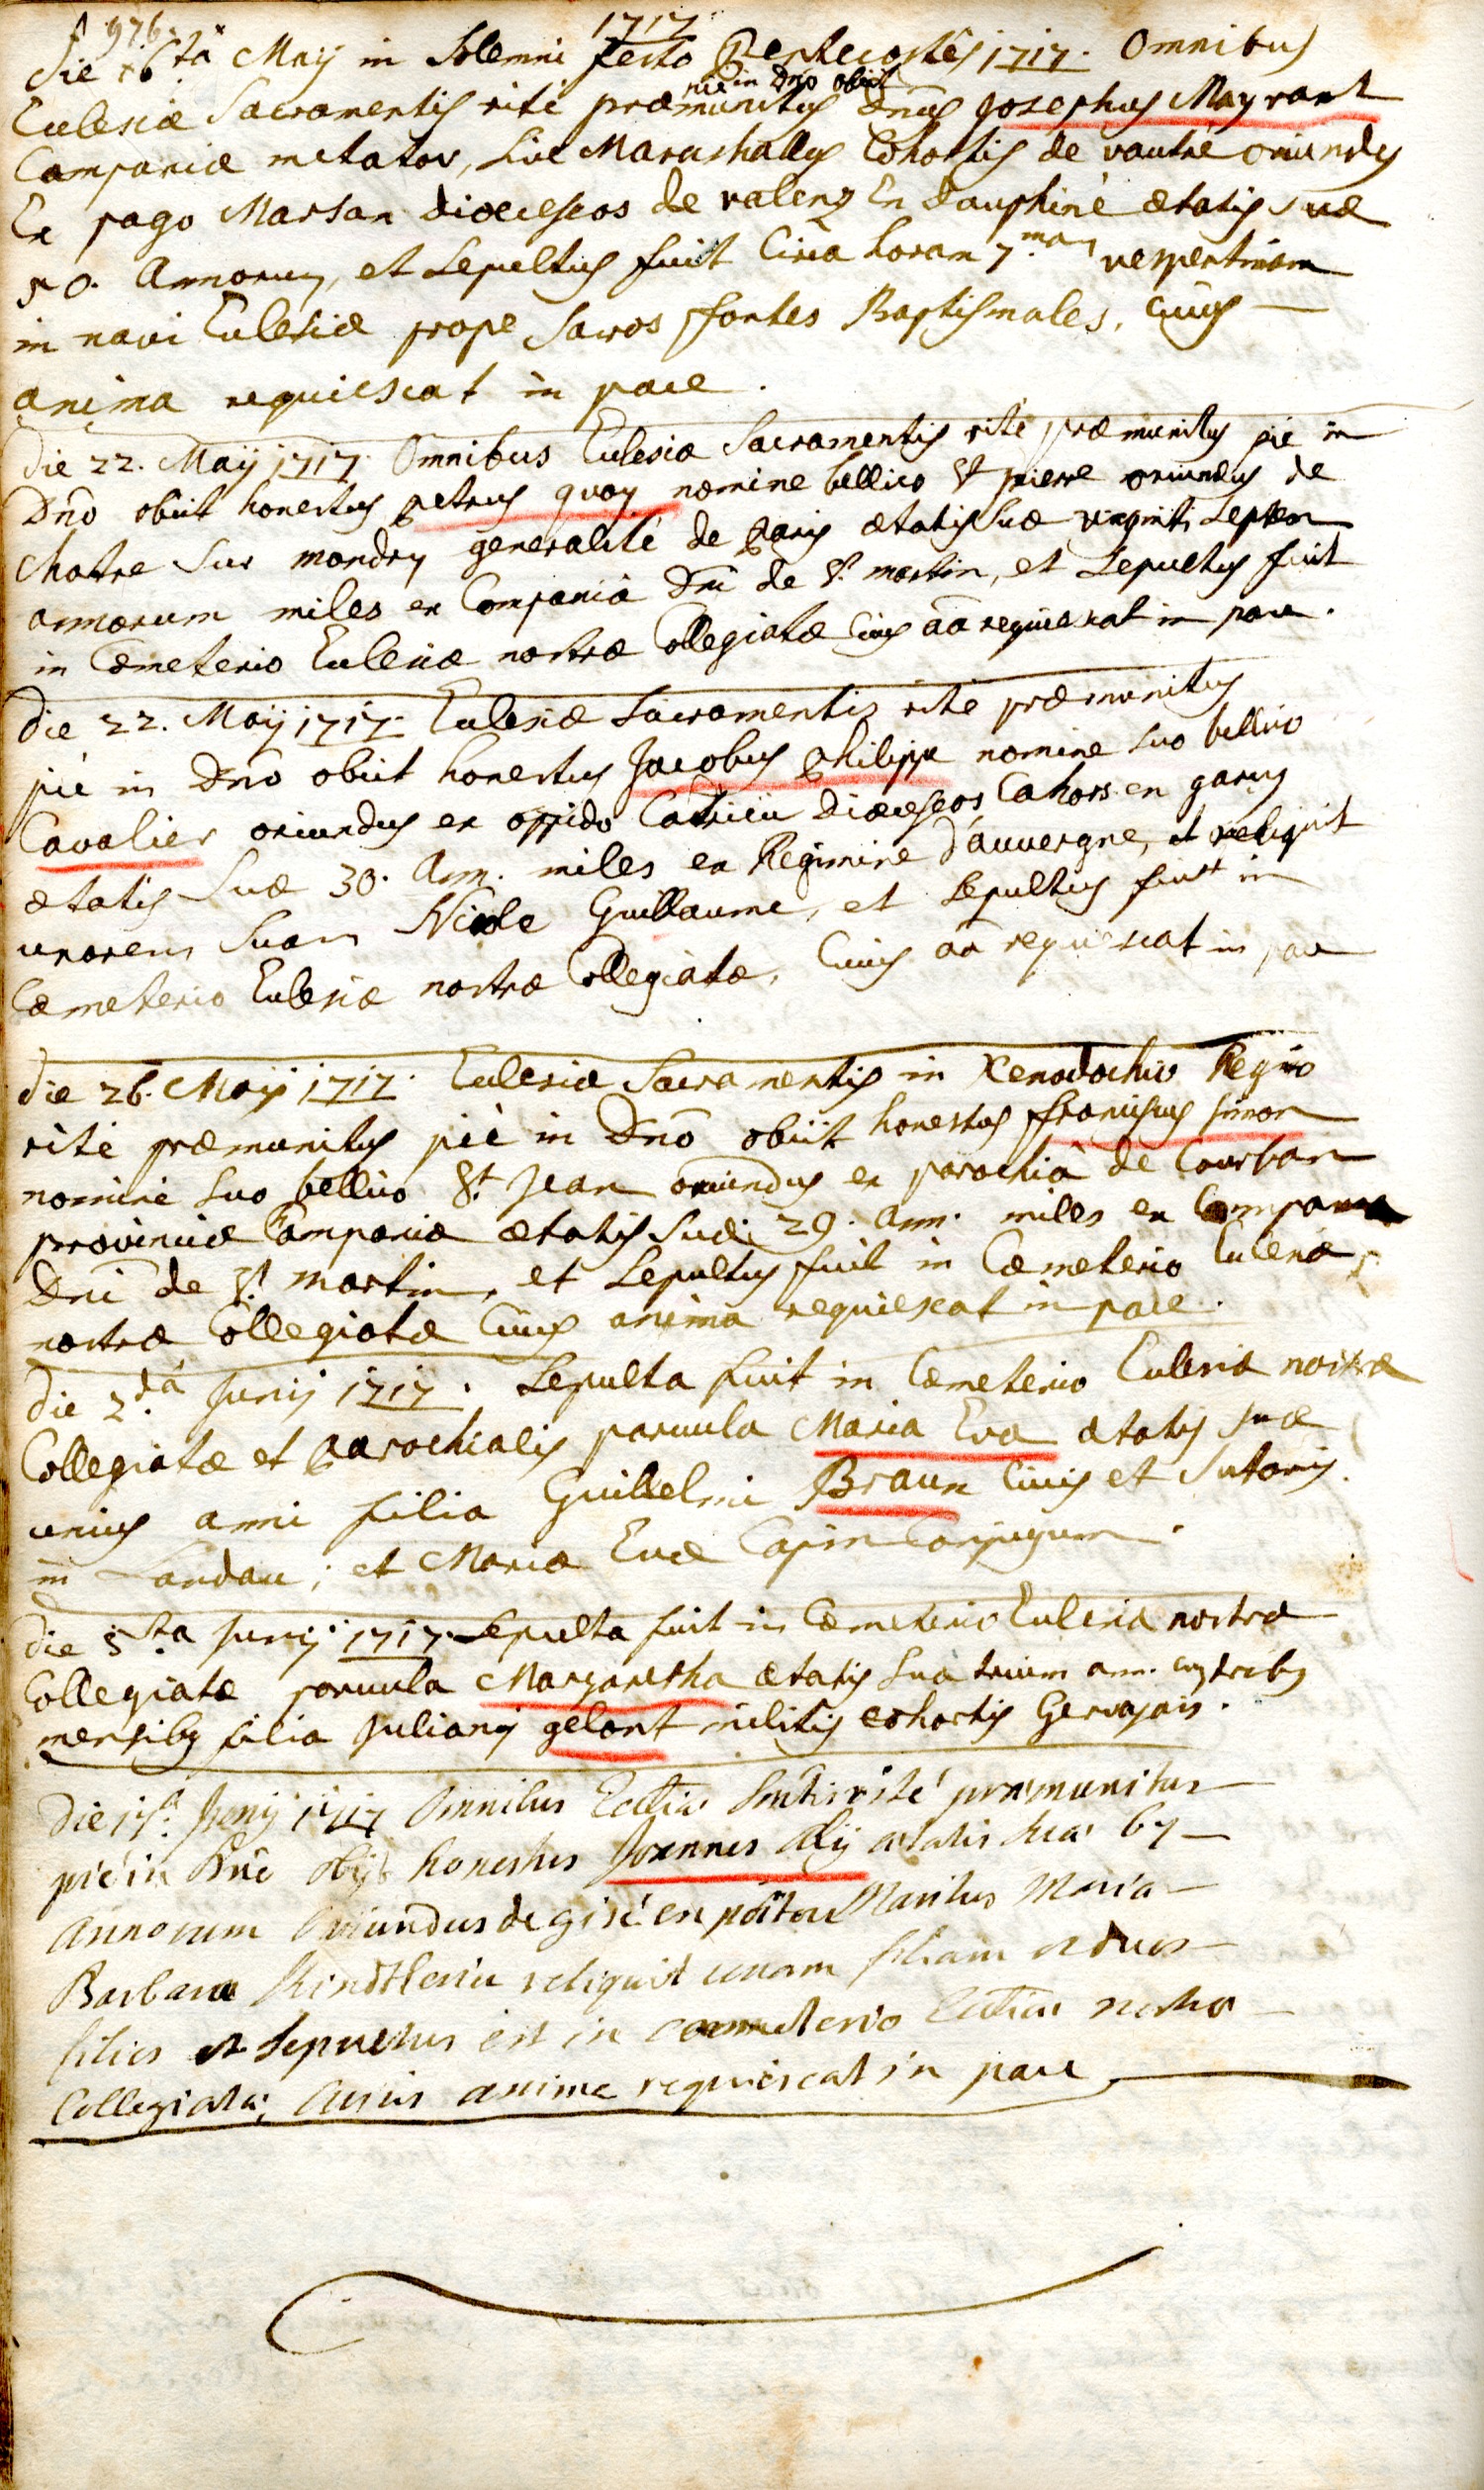 976.
1717
Die 16ta Maÿ in Solemni festo Pentecostes 1717. Omnibus
pie in Dno obiit
Eclesiæ Sacramentis rité præmunitus Dnus Josephus Mayrant
Campaniæ metator, sive Mareshallus Cohortis de vautré oriundus
Ex pago Marsan Dioeceseos de valenz En dauphiné ætatis suæ
50. Annorum, et Sepultus fuit Circa horam 7.mam vespertinam
in navi Eclesiæ prope Sacros ffontes Baptismales, cuius
anima requiescat in pace.
Die 22. Maÿ 1717. Omnibus Eclesiæ Sacramentis rité præmunitus pie in
Dno obiit honestus petrus quoy nomine bellico St pierre oriundus de
Chatre sur mondry generalité de paris ætatis suæ viginti septem
annorum miles ex Compania Dni de St. martin, et Sepultus fuit
in Cæmeterio Eclesiæ nostræ Collegiatæ Cuius aa requiescat in pace.
Die 22. Maÿ 1717. Eclesiæ Sacramentis rité præmunitus
pié in Dno obiit honestus Jacobus philippe nomine suo bellico
Cavalier oriundus ex oppido Dioeceseos Cahors en
ætatis Suæ 30. Ann. miles ex Regimine d'auvergne, et reliquit
uxorem Suam Nicole Guillaume, et Sepultus fuit in
Cæmeterio Eclesiæ nostræ Collegiatæ, Cuius aa requiescat in pace
Die 26. Maÿ 1717. Eclesiæ Sacramentis in Xenodochio Regio
rité præmunitus pié in Dno obiit honestus ffranciscus simon
nomine suo bellico St. Jean oriundus ex parochia de Courban
provinciæ Campaniæ ætatis Suæ 29. Ann. miles ex Compania
Dni de St. martin, et Sepultus fuit in Cæmeterio Eclesiæ
nostræ Collegiatæ Cuius anima requiescat in pace.
Die 2.da Junÿ 1717. Sepulta fuit in Cæmeterio Eclesiæ nostræ
Collegiatæ et parochialis parvula Maria Eva ætatis suæ
unius anni filia Guillelmi Braun Civis et Sutoris
in Landau; et Mariæ Evæ Capin Conjugum.
Die 5.ta Junÿ 1717. Sepulta fuit in Cæmeterio Eclesiæ nostræ
Collegiatæ parvula Margaretha ætatis suæ trium ann. cum tribus
mensibus filia Juliani gelant militis cohortis Gervasais.
Die 17a Junÿ 1717 Omnibus Ecctiæ Sntis rité præmunitus
pié in Dno obiit honestus Joannes ætatis suæ 67
annorum oriundus de gisé en poitou Maritus Maria
Barbara reliquit unam filiam et duos
filios et Sepultus est in cæmeterio Ecctiæ nostræ
Collegiatæ, Cuius anima requiescat in pace